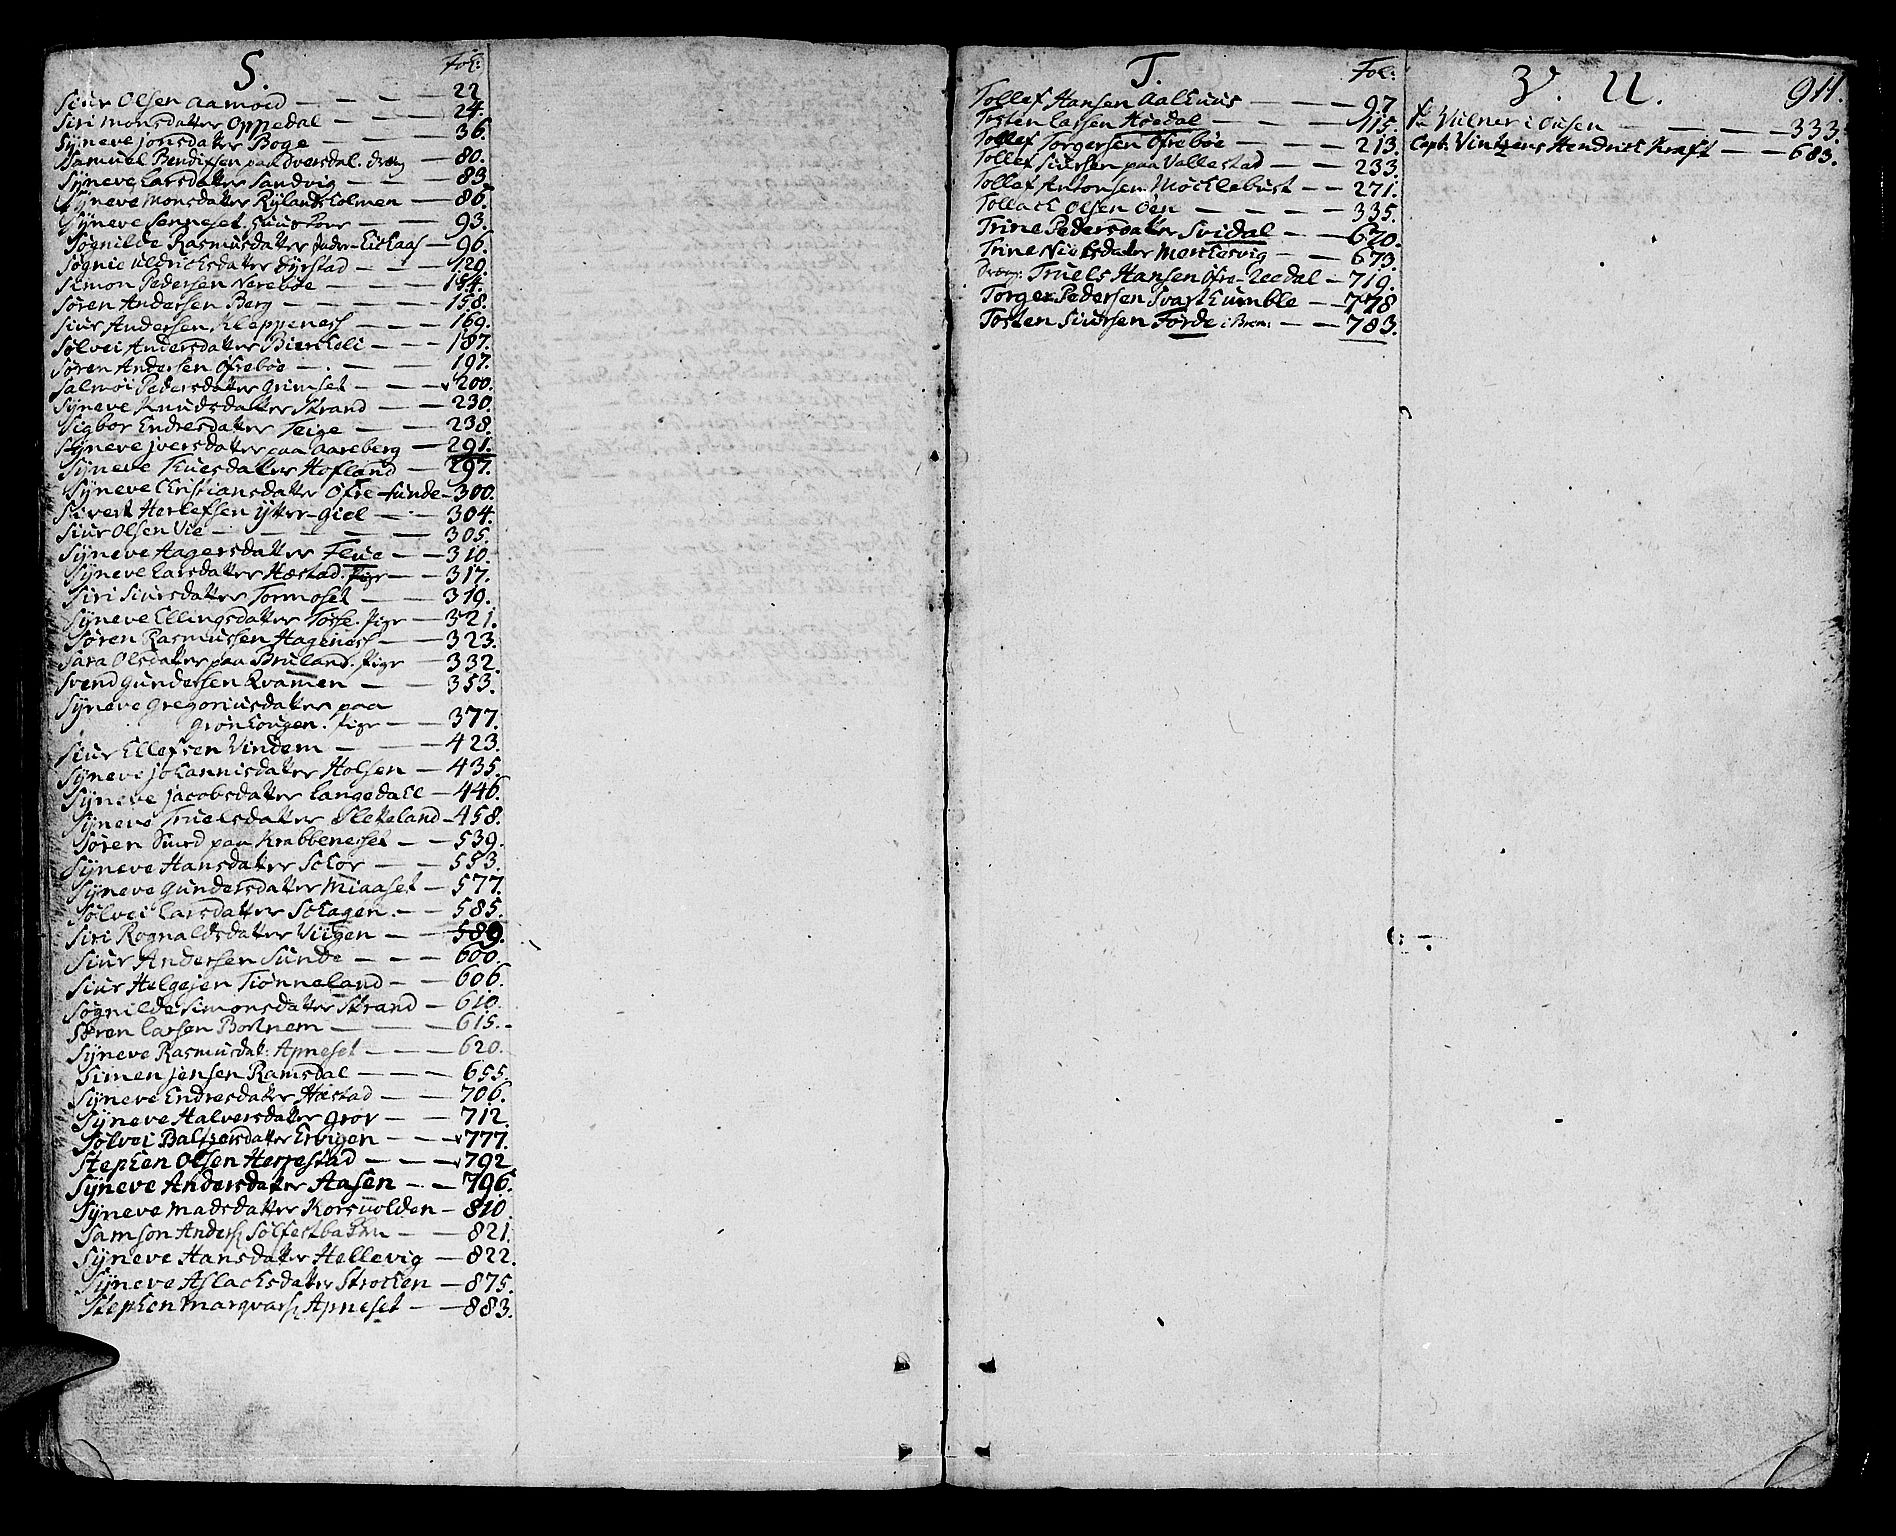 S. Fol:
Siur Olsen Aamoed — — — 22
Siri Monsdatter Oppedal — — 24.
Syneve Jonsdatter Boge — — 36.
Samuel Bendixsen paa Dvergsdal. dreng 80.
Syneve Larsdatter Sandvig — — 83
Syneve Monsdatter Rylandsholmen — 86.
Syneve Senneset. — 93.
Søgnilde Rasmusdatter Inder-Eichaas — 96.
Søgnie Uldrichsdatter Dyrstad — — 129.
Simon Pedersen Nerebøe — — 154.
Søren Andersen Berg — — — 158.
Siur Andersen Kleppeness — — 169.
Sølvei Andersdatter Bircheli — — 187.
Søren Andersen Ofrebøe — . — — 197.
Salmoi Pedersdatter Grimset — — 200.
Syneve Knudsdatter Strand — — 230.
Sigbor Endresdatter Teige — — 238.
Syneve Iversdatter paa Aareberg — 291.
Syneve Tuesdatter Hofland — 297.
Syneve Christiansdatter Ofre-Sunde — 300.
Sivert Herlefsen Ytter-Giel — — 304.
Siur Olsen Vie — — — — 305.
Syneve Aagersdatter Flue — — 310.
Syneve Larsdatter Hæstad. Pige — — 317.
Siri Siursdatter Tormoset — — 319.
Syneve Ellingsdatter Tosse. Pige — 321.
Søren Rasmussen Hageness — — 323.
Sara Olsdatter paa Bruland. Pige — 332.
Svend Gundersen Kvamen — — 353.
Syneve Gregoriusdatter paa
Grønhougen. Pige — — 377.
Siur Ellefsen Vindem — — — 423.
Syneve Johannisdatter Holsen — 435.
Syneve Jacobsdatter Langedall — 446.
Syneve Truelsdatter Sleteland — 458.
Søren Siurd paa Krabbenesset — — 539.
Syneve Hansdatter Schor — — 553.
Syneve Gundersdatter Miaaset — 577.
Sølvei Larsdatter Schagen. — — 585.
Siri Rognaldsdatter Viigen — — 589.
Siur Andersen Sunde — — — 600.
Siur Helgesen Tiønneland — — 606.
Søgnilde Simonsdatter Strand — 610.
Søren Larsen Bortnem — — — 615.
Syneve Rasmusdat: Apneset — — — 620.
Simen Jensen Ramsdal — — — 655.
Syneve Endresdatter Hæstad — — 706.
Syneve Halversdatter Grov — — 712.
Sølvei Baltzersdatter Ervigen — — — 777.
Stephen Olsen Herrestad — — — 792
Syneve Andersdatter Aasen — . — 796.
Syneve Madsdatter Korsvolden — 810.
Samson Anders: Solfestbakken — — 821.
Syneve Hansdatter Hellevig — 822.
Syneve Aslachsdatter Strochen — 875.
Stephen Marqvars: Apneset — — 883.
T. Fol:
Tollef Hansen Aalhuus — — — 97.
Tosten Larsen Høedal — — — 115.
Tollef Torgersen Ofrebøe — — — 213.
Tollef Siursen paa Vallestad — — 233.
Tollef Antonsen Møchlebust — — 271.
Tollach Olsen Øen — — — — 335.
Trine Pedersdatter Svidal — — — 620.
Trine Nielsdatter Monchesvig — — 673.
Dreng: Truels Hansen Ofre-Aaedal — 719.
Torger Pedersen Svarthumble — 778
Tosten Siursen Førde i Brem: — — 783.
V. U. 911.
Vilner i Ousen — — — — 333.
Capt: Vintzens Hendrich Kraft — — 683.